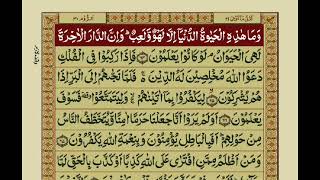 وَمَا هٰذِهِ الْحَيٰوةُ الدُّنْيَآ اِلَّا لَهْوٌ وَّلَعِبٌ ؕ وَاِنَّ الدَّارَ الْاٰخِرَةَ
لَهِىَ الْحَيَوَانُ ۘ لَوْ كَانُوْا يَعْلَمُوْنَ ﴿۶۴﴾ فَاِذَا رَكِبُوْا فِى الْفُلْكِ
دَعَوُا اللّٰهَ مُخْلِصِيْنَ لَهُ الدِّيْنَ ۚ فَلَمَّا نَجّٰىهُمْ اِلَى الْبَرِّ اِذَا
هُمْ يُشْرِكُوْنَ ﴿۶۵﴾ لِيَكْفُرُوْا بِمَآ اٰتَيْنٰهُمْ ۙ وَلِيَتَمَتَّعُوْا فَسَوْفَ
يَعْلَمُوْنَ ﴿۶۶﴾ اَوَلَمْ يَرَوْا اَنَّا جَعَلْنَا حَرَمًا اٰمِنًا وَّيُتَخَطَّفُ النَّاسُ
مِنْ حَوْلِهِمْ ؕ اَفَبِالْبَاطِلِ يُؤْمِنُوْنَ وَبِنِعْمَةِ اللّٰهِ يَكْفُرُوْنَ ﴿۶۷﴾
وَمَنْ اَظْلَمُ مِمَّنِ افْتَرٰى عَلَى اللّٰهِ كَذِبًا اَوْ كَذَّبَ بِالْحَقِّ لَمَّا